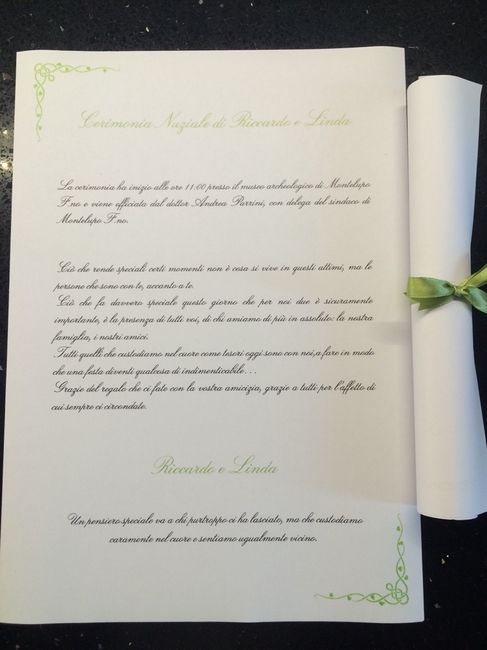 Cerimonia Nuziale di Riccardo e Linda
La cerimonia ha inizio alle ore 11:00 presso il museo archeologico di Montelupo
F.no e viene officiata dal dottor Andrea Parrini, con delega del sindaco di
Montelupo F.no.
Ciò che rende speciali certi momenti non è cosa si vive in questi attimi, ma le
persone che sono con te, accanto a te.
Ciò che fa davvero speciale questo giorno che per noi due è sicuramente
importante, è la presenza di tutti voi, di chi amiamo di più in assoluto: la nostra
famiglia, i nostri amici.
Tutti quelli che custodiamo nel cuore come tesori oggi sono con noi,a fare in modo
che una festa diventi qualcosa di indimenticabile…
Grazie del regalo che ci fate con la vostra amicizia, grazie a tutti per l'affetto di
cui sempre ci circondate.
Riccardo e Linda
Un pensiero speciale va a chi purtroppo ci ha lasciato, ma che custodiamo
caramente nel cuore e sentiamo ugualmente vicino.